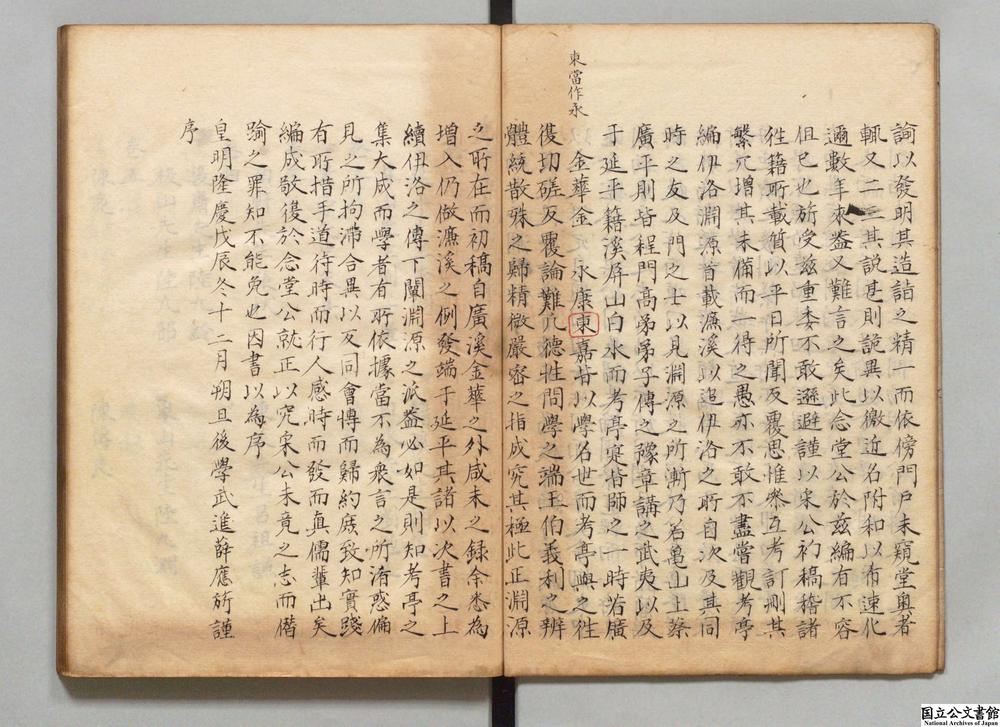 東當作永
諭以發明其造詣之精一而依傍門戸未窺堂奥者
輒又二三其説甚則詭異以徼近名附和以布速化
邇數年來益又難言之矣此念堂公於兹編有不容
但已也旂受兹重委不敢遜避謹以宋公初稿稽諸
徃籍所載質以平日所聞反覆思惟叅互考訂刪其
繁冗增其未備而一得之愚亦不敢不盡嘗觀考亭
編伊洛淵源首載濂溪以追伊洛之所自次及其同
時之友及門之士以見淵源之所漸乃若龜山上蔡
廣平則皆程門高弟弟子傳之豫章講之武夷以及
于延平籍溪屏山白水而考亭寔皆師之一時若廣
金華金 永康東嘉皆以學名世而考亭與之徃
復切磋反覆論難凢德性問學之端王伯義利之辨
體統散殊之歸精微嚴密之指咸究其極此正淵源
之所在而初稿自廣溪金華之外咸未之録余悉為
增入仍倣濂溪之例發端于延平其諸以次書之上
續伊洛之傳下闡淵源之派盖必如是則知考亭之
集大成而學者有所依據當不為衆言之所淆惑偏
見之所拘滯合異以反同會博而歸約庻致知實踐
有所措手道待時而行人感時而發而真儒輩出矣
編成敬復於念堂公就正以究宋公未竟之志而僭
踰之罪知不能免也因書以為序
皇明隆慶戊辰冬十二月朔旦後學武進薛應旂謹
序
国立公文書館
National Archives of Japan